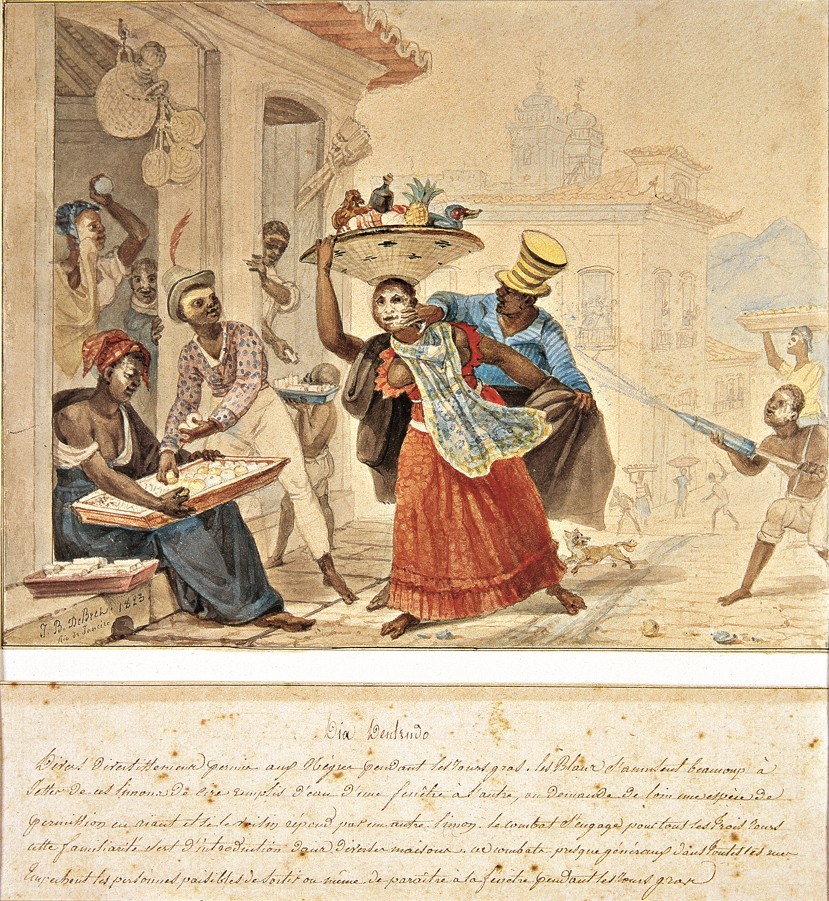 J. B. Debret. 1823
Rio de Janeiro
Dia Dentrudo
Divers divertissemens permis aux Nègres pendant les jours gras. les Blancs s'amusent beaucoup à
jetter de ces limons de cire remplis d'eau d'une fenêtre à l'autre, on demande de loin une espèce de
permission en riant et le voisin répond par un autre limon. le combat s'engage pour tous les trois jours
cette familiarité sert d'introduction dans diverses maisons. ces combats presque généraux dans toutes les rues
empechent les personnes paisibles de sortir ou même de paroître à la fenêtre pendant les jours gras